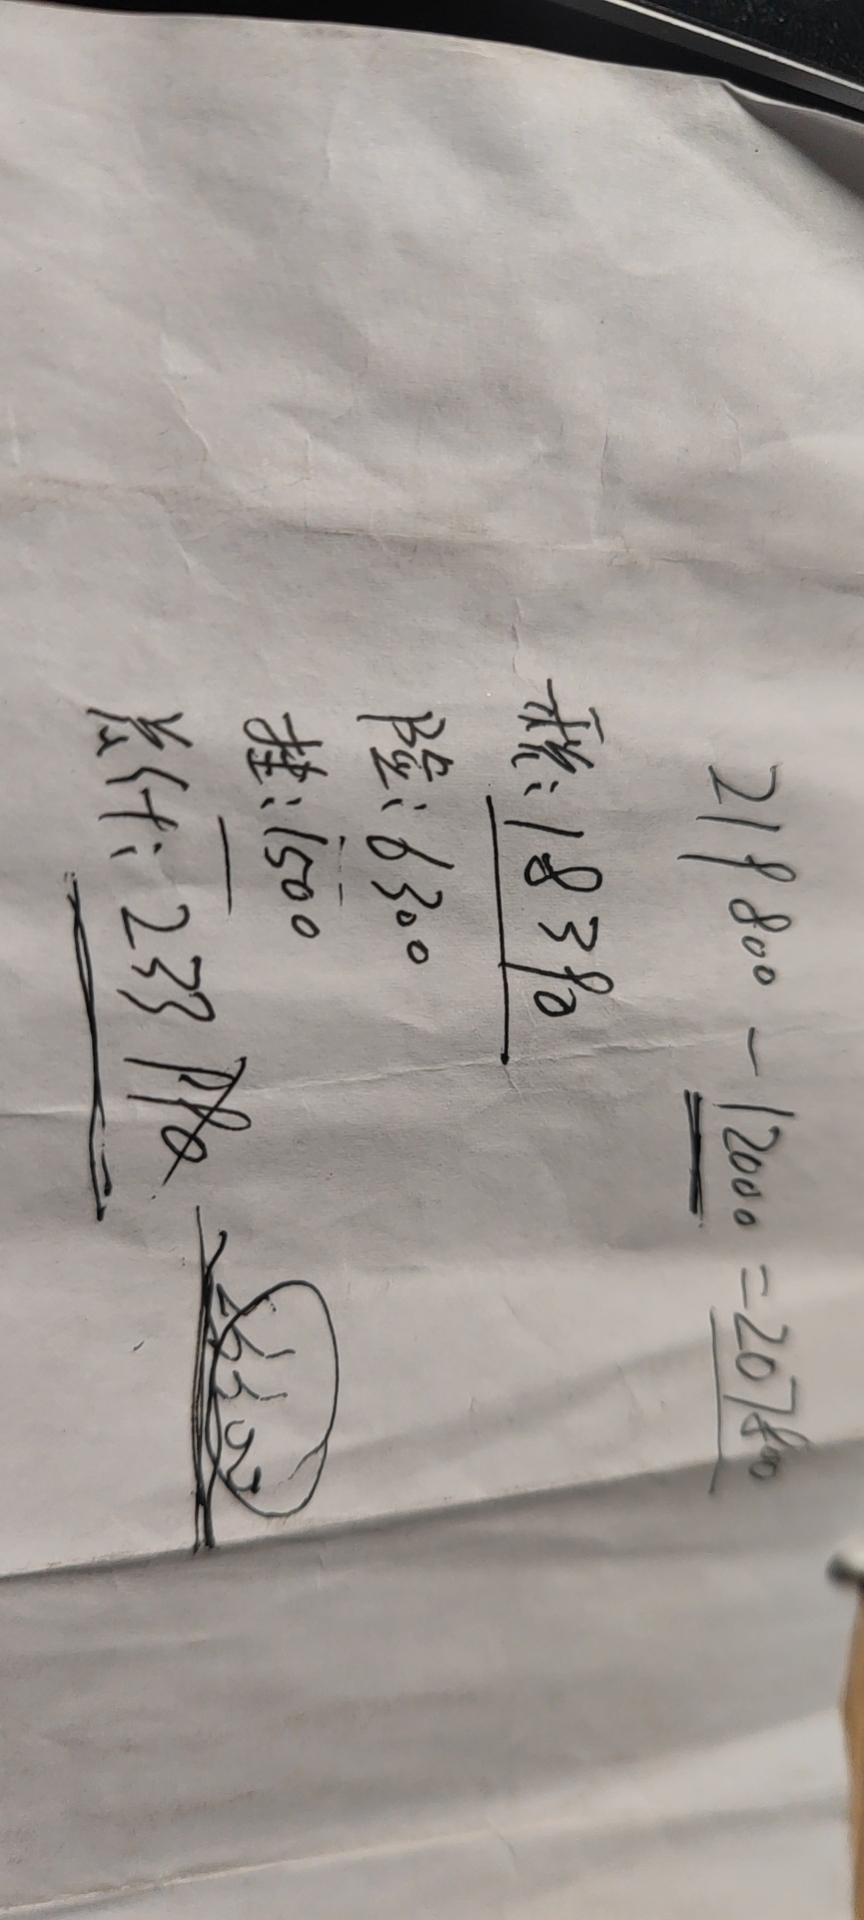 219800 - 12000 = 207800
税:18390
险:6300
挂:1500
总计:233990